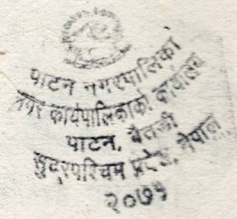 पाटन नगरपालिका
नगर कार्यपालिकाको कार्यालय
पाटन, बैतडी
सुदूरपश्चिम प्रदेश, नेपाल
२०७५